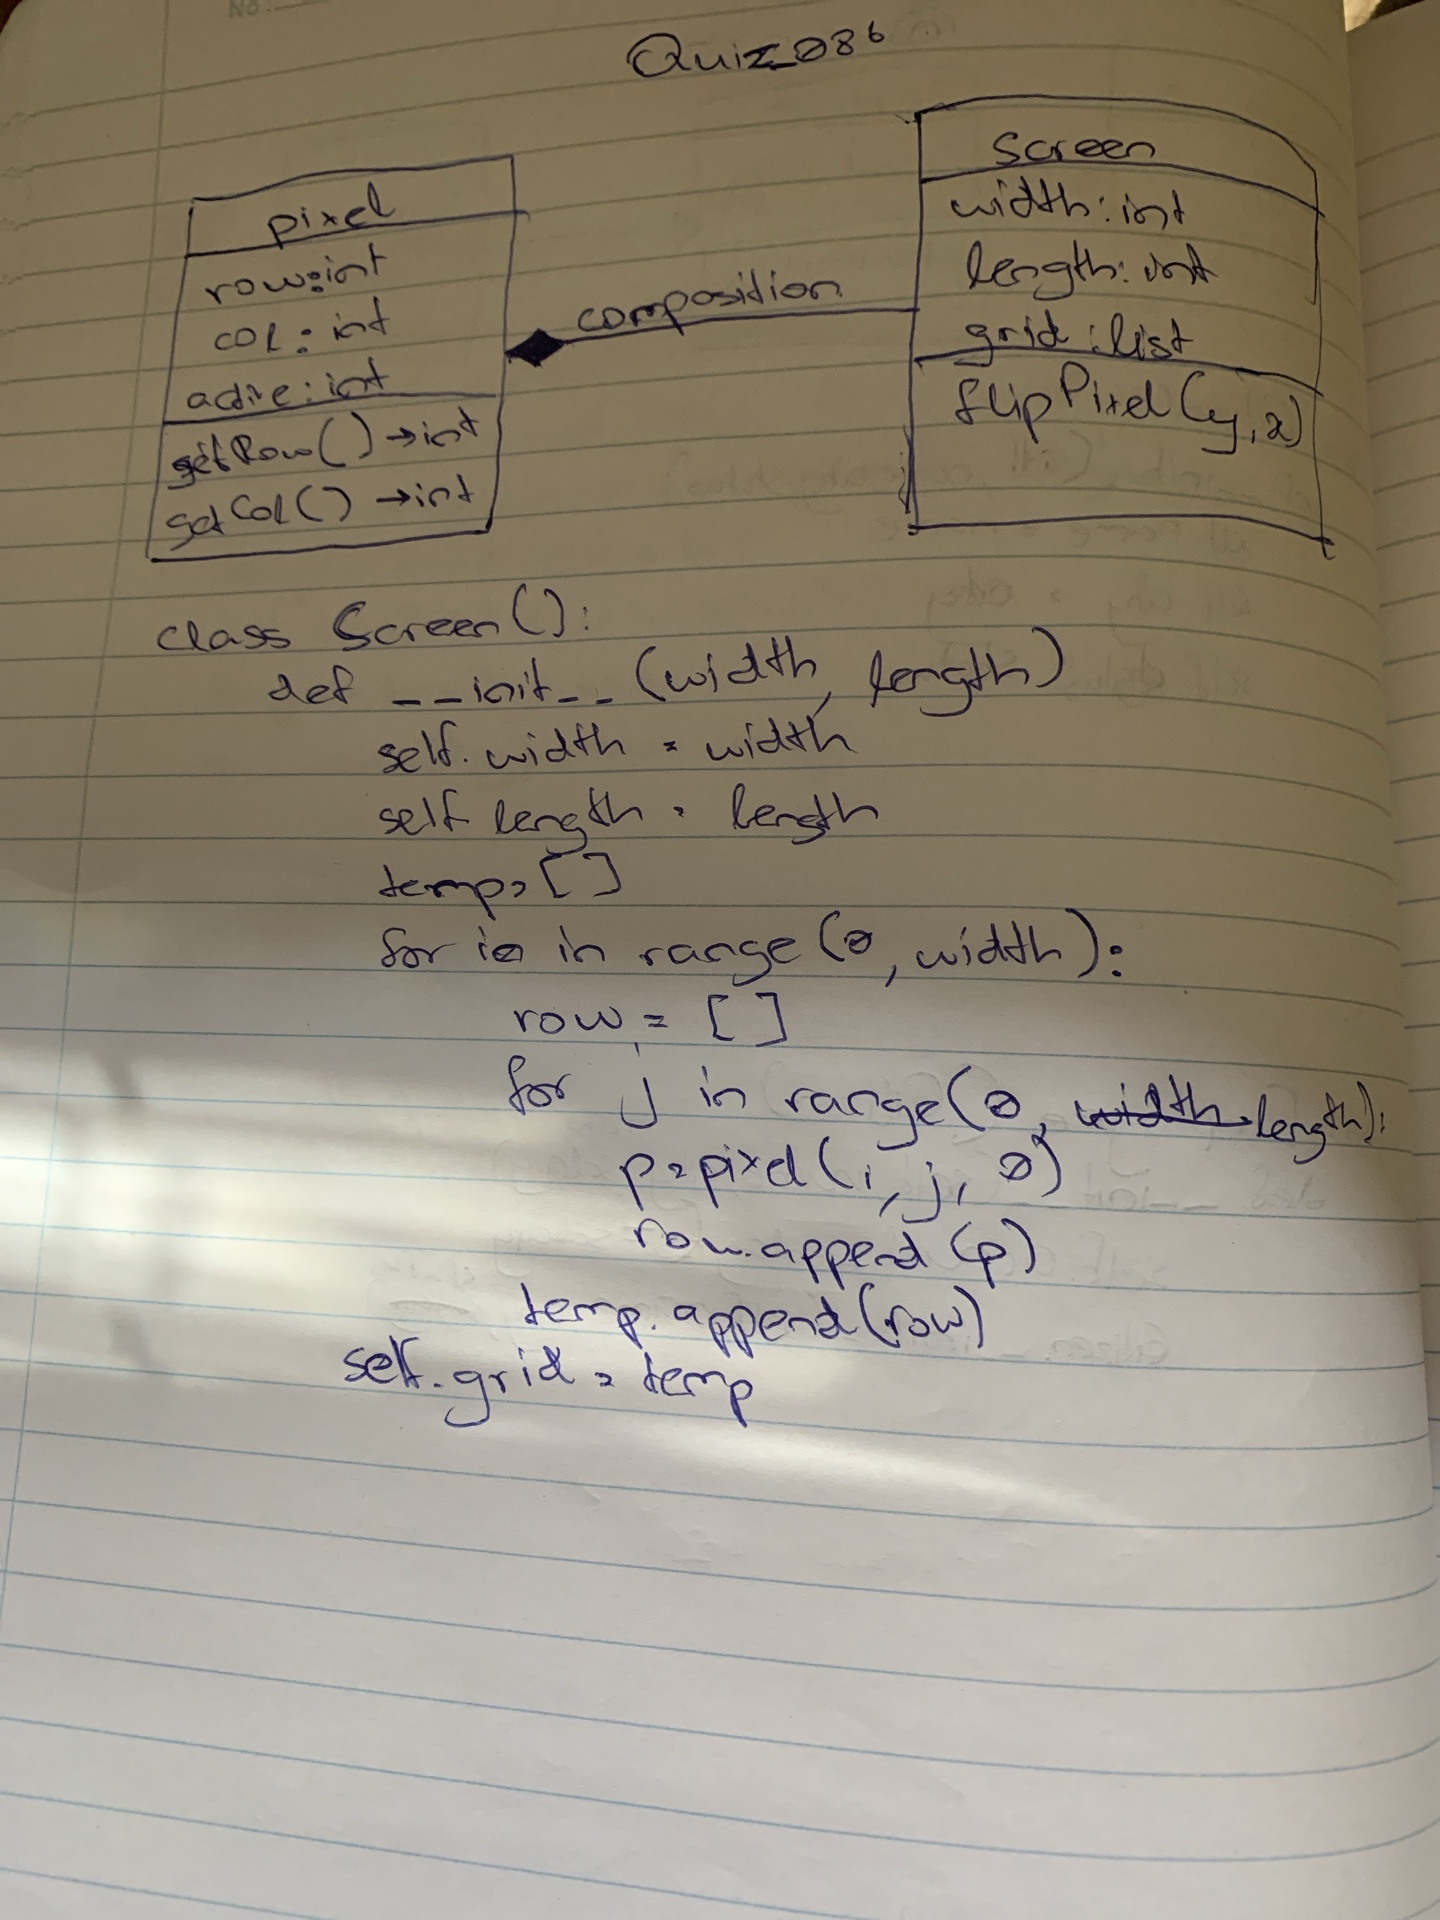 No.
Quiz_086
pixel
row:int
col: int
active: int
getRow() →int
getCol() →int
composition
Screen
width: int
length: int
grid: list
flipPixel(y,x)
class Screen():
def __init__ (width, length)
self.width = width
self length = length
temp= []
for i in range (0, width):
row = []
for j in range(0, width length):
p=pixel(i, j, 0)
row.append(p)
temp.append(row)
self.grid = temp